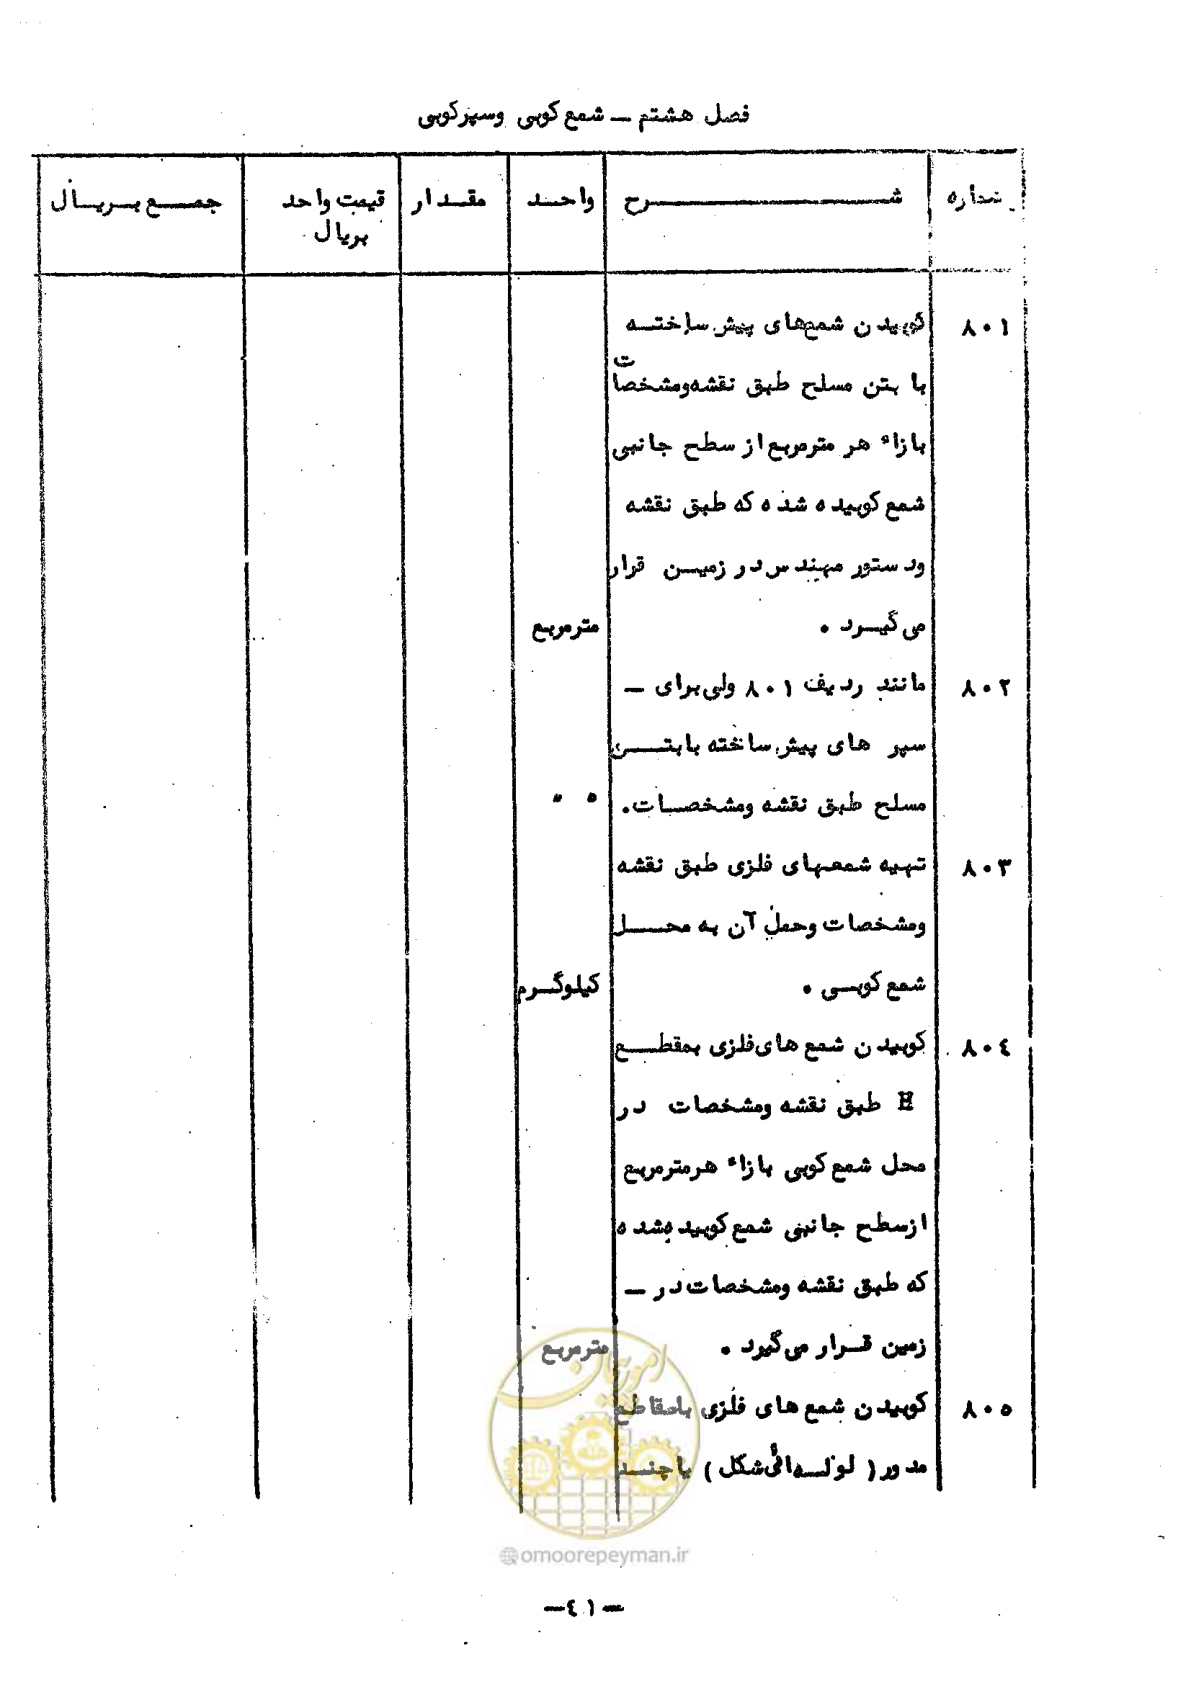 فصل هشتم ــ شمع کوبی وسپرکوبی
شماره شــــــرح واحــد مقــدار قیمت واحد بریال جمــع بــریــال
۸۰۱ کوبیدن شمعهای پیش ساختــه
با بتن مسلح طبق نقشه ومشخصات
بازاء هر مترمربع از سطح جانبی
شمع کوبیده شده که طبق نقشه
ودستور مهندس در زمیــن قرار
می گیــرد . مترمربع
۸۰۲ مانند ردیف ۸۰۱ ولی برای ــ
سپر های پیش ساخته با بتــــن
مسلح طبق نقشه ومشخصــات. " "
۸۰۳ تهیه شمعهای فلزی طبق نقشه
ومشخصات وحمل آن به محــــل
شمع کوبــی . کیلوگــرم
۸۰٤ کوبیدن شمع های فلزی بمقطــــع
H طبق نقشه ومشخصات در
محل شمع کوبی بازاء هرمترمربع
ازسطح جانبی شمع کوبیده شده
که طبق نقشه ومشخصات در ــ
زمین قــرار می گیرد . مترمربع
۸۰۵ کوبیدن شمع های فلزی بامقاطع
مدور ( لولــه ائی شکل ) یا چنــد
امور پیمان
@omoorepeyman.ir
ــ٤۱ــ